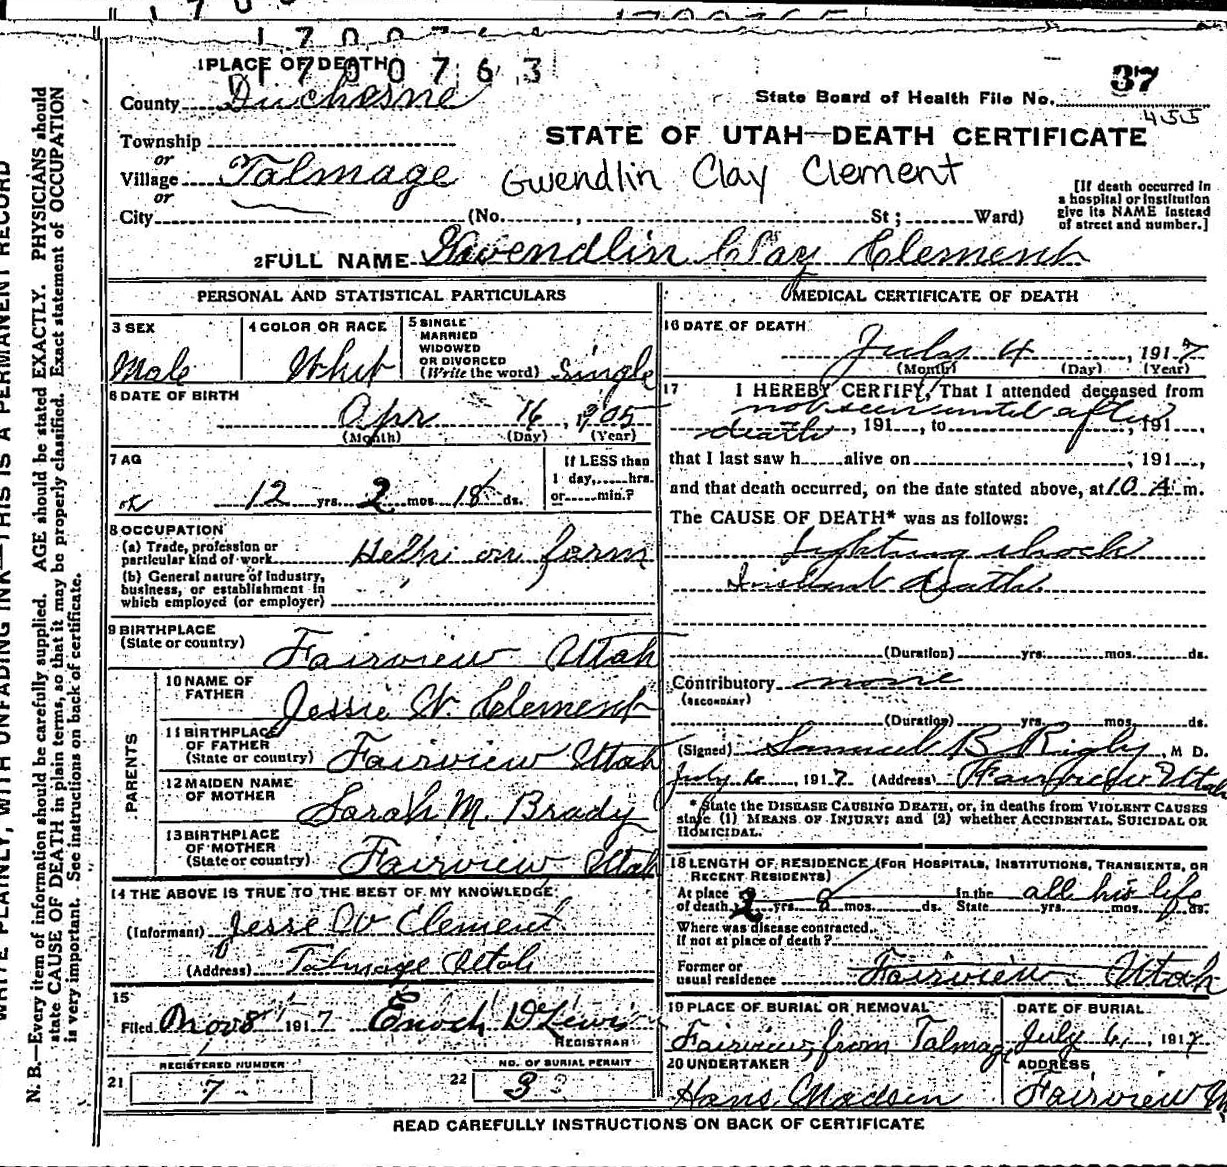 1700763
1 PLACE OF DEATH
County Duchesne
State Board of Health File No. 37
455
Township
or
Village Talmage
or
City (No. , St; Ward)
STATE OF UTAH—DEATH CERTIFICATE
Gwendlin Clay Clement
[If death occurred in
a hospital or institution
give its NAME instead
of street and number.]
2 FULL NAME Gwendlin Clay Clement
PERSONAL AND STATISTICAL PARTICULARS
3 SEX
Male
4 COLOR OR RACE
Whit
5 SINGLE
MARRIED
WIDOWED
OR DIVORCED
(Write the word) Single
6 DATE OF BIRTH
Apr 16, 1905
(Month) (Day) (Year)
7 AG
12 yrs. 2 mos. 18 ds.
If LESS than
1 day, hrs.
or min.?
8 OCCUPATION
(a) Trade, profession or
particular kind of work Help on farm
(b) General nature of industry,
business, or establishment in
which employed (or employer)
9 BIRTHPLACE
(State or country) Fairview Utah
PARENTS
10 NAME OF
FATHER Jessie W. Clement
11 BIRTHPLACE
OF FATHER
(State or country) Fairview Utah
12 MAIDEN NAME
OF MOTHER Sarah M. Brady
13 BIRTHPLACE
OF MOTHER
(State or country) Fairview Utah
14 THE ABOVE IS TRUE TO THE BEST OF MY KNOWLEDGE
(Informant) Jesse W Clement
(Address) Talmage Utah
15
Filed Nov 8 1917 Enoch D Lewis
REGISTRAR
REGISTERED NUMBER
21 7
NO. OF BURIAL PERMIT
22 3
MEDICAL CERTIFICATE OF DEATH
16 DATE OF DEATH
July 4, 1917
(Month) (Day) (Year)
17 I HEREBY CERTIFY, That I attended deceased from
not seen until after
death, 191 , to , 191 ,
that I last saw h alive on , 191 ,
and that death occurred, on the date stated above, at 10 A m.
The CAUSE OF DEATH* was as follows:
Lighting shock
Instant death
(Duration) yrs. mos. ds.
Contributory none
(SECONDARY)
(Duration) yrs. mos. ds.
(Signed) Samuel B Rigby, M D.
July 6, 1917. (Address) Fairview Utah
* State the DISEASE CAUSING DEATH, or, in deaths from VIOLENT CAUSES
state (1) MEANS OF INJURY; and (2) whether ACCIDENTAL, SUICIDAL OR
HOMICIDAL.
18 LENGTH OF RESIDENCE (FOR HOSPITALS, INSTITUTIONS, TRANSIENTS, OR
RECENT RESIDENTS)
At place In the all his life
of death 2 yrs. 8 mos. ds. State yrs. mos. ds.
Where was disease contracted,
if not at place of death?
Former or
usual residence Fairview Utah
19 PLACE OF BURIAL OR REMOVAL
Fairview, from Talmage
DATE OF BURIAL
July 6, 1917
20 UNDERTAKER
Hans Madsen
ADDRESS
Fairview
READ CAREFULLY INSTRUCTIONS ON BACK OF CERTIFICATE
WRITE PLAINLY, WITH UNFADING INK—THIS IS A PERMANENT RECORD
N. B.—Every item of information should be carefully supplied. AGE should be stated EXACTLY. PHYSICIANS should
state CAUSE OF DEATH in plain terms, so that it may be properly classified. Exact statement of OCCUPATION
is very important. See instructions on back of certificate.